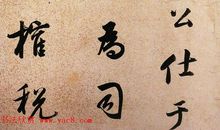 公仕于
為司
榷税
书法欣赏
www.yac8.com